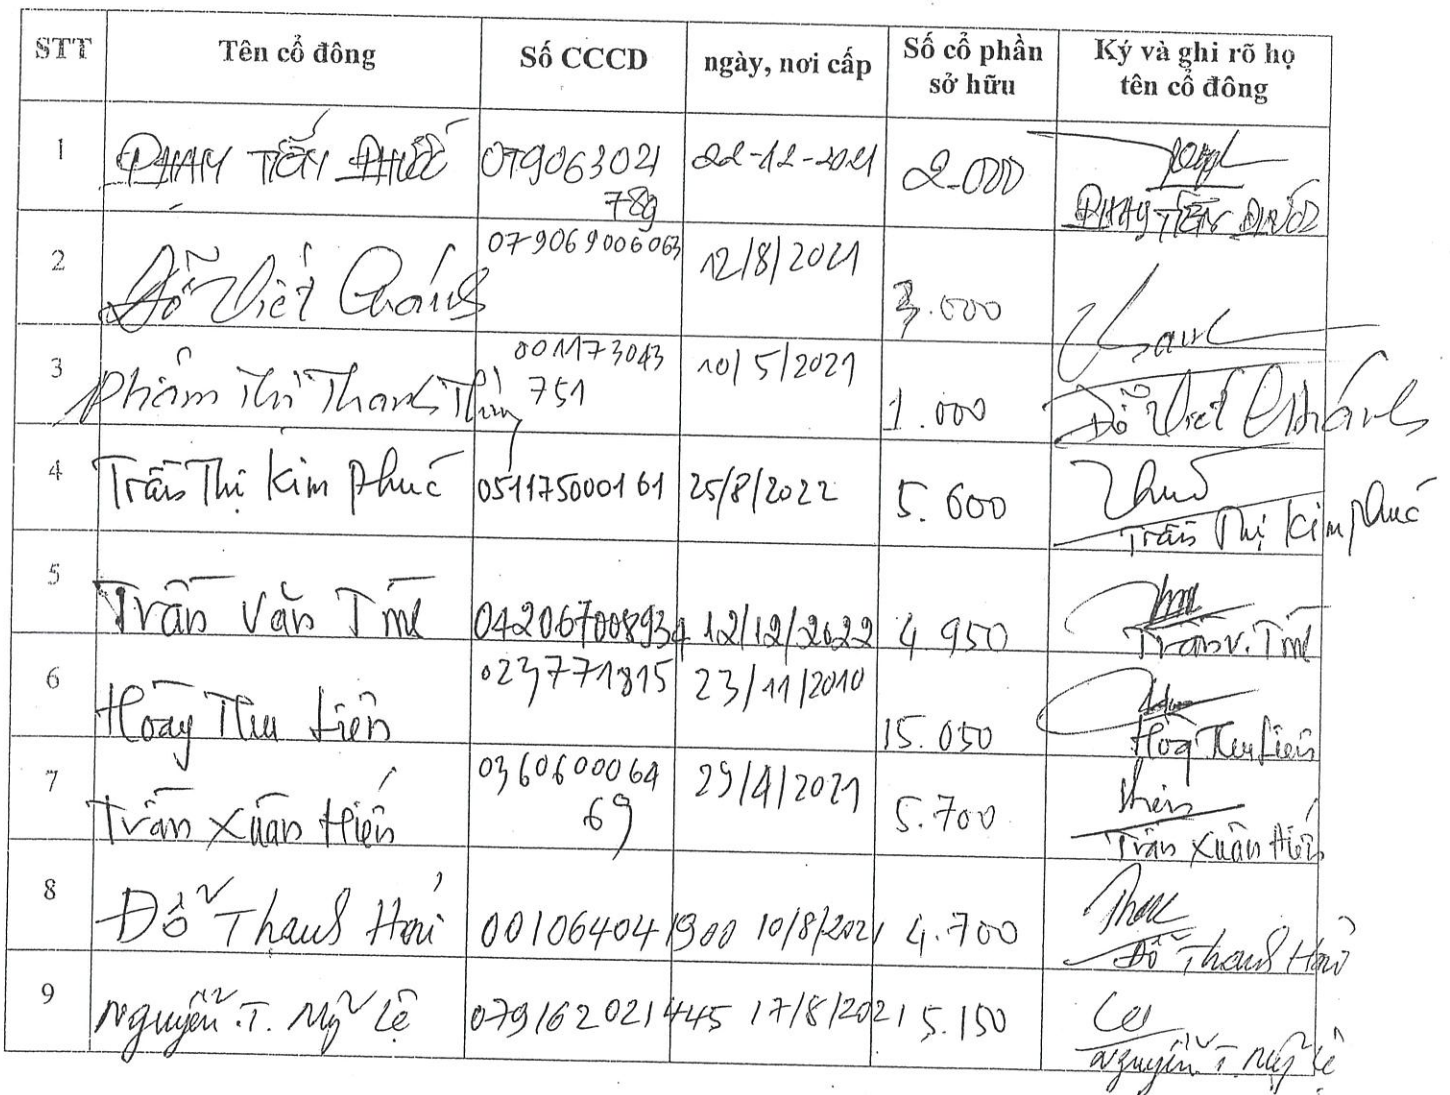 STT Tên cổ đông Số CCCD ngày, nơi cấp Số cổ phần sở hữu Ký và ghi rõ họ tên cổ đông
1 TIẾN 079063021 789 22-12-2021 2.000 TIẾN
2 Đỗ Viết Khánh 079069006063 12/8/2021 3.000 Đỗ Viết Khánh
3 Phạm Thị Thanh Thủy 001173043 751 10/5/2021 1.000
4 Trần Thị Kim Phúc 051175000161 25/8/2022 5.600 Trần Thị Kim Phúc
5 Trần Văn 042067008934 12/12/2022 4.950 Trần V.
6 Hoàng Thu Liên 023771815 23/11/2010 15.050 Thu Liên
7 Trần Xuân Hiến 0360600064 69 29/4/2021 5.700 Trần Xuân Hiến
8 Đỗ Thanh 001064041900 10/8/2021 4.700 Đỗ Thanh
9 Nguyễn.T. Mỹ Lệ 079162021445 17/8/2021 5.150 Nguyễn T. Mỹ Lệ